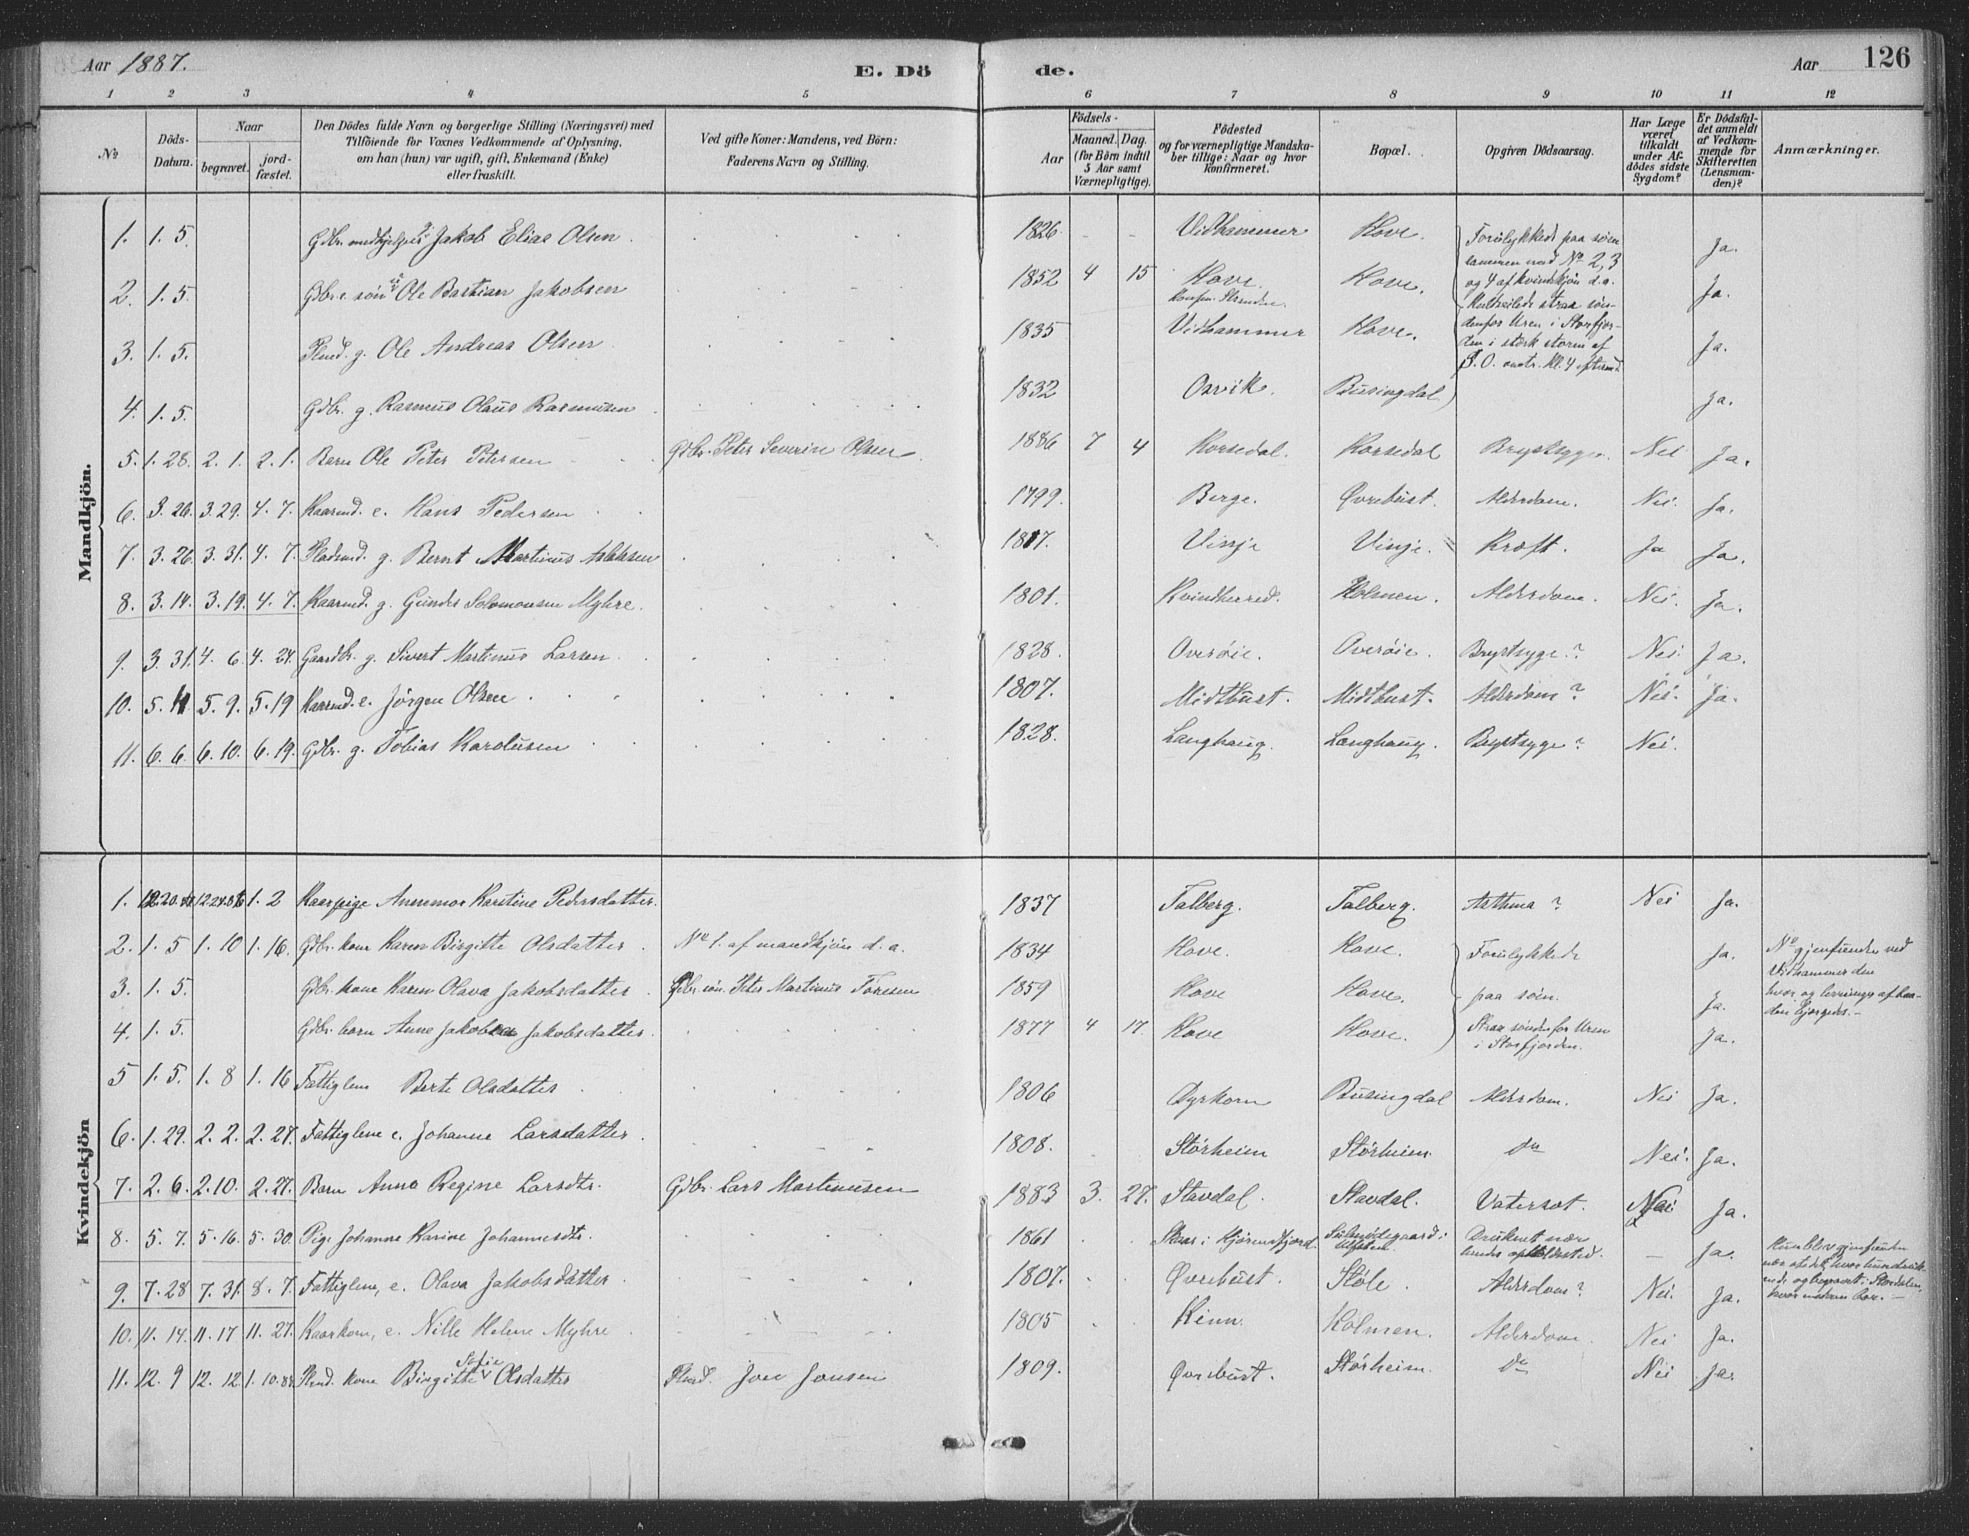 Aar 1887. E. Dö de. Aar 126
1 2 3 4 5 6 7 8 9 10 11 12
No
Döds-Datum.
Naar
begravet.
jord-fæstet.
Den Dödes fulde Navn og borgerlige Stilling (Næringsvei) med
Tilföiende for Voxnes Vedkommende af Oplysning,
om han (hun) var ugift, gift, Enkemand (Enke)
eller fraskilt.
Ved gifte Koner: Mandens, ved Börn:
Faderens Navn og Stilling.
Födsels-
Aar
Maaned. Dag.
(for Börn indtil
5 Aar samt
Værnepligtige).
Födested
og for værnepligtige Mandska-
ber tillige: Naar og hvor
konfirmeret.
Bopæl.
Opgiven Dödsaarsag.
Har Læge
været
tilkaldt
under Af-
dödes sidste
Sygdom?
Er Dödsfal-
det anmeldt
af Vedkom-
mende for
Skifteretten
(Lensman-
den)?
Anmærkninger.
Mandkjön.
1. 1. 5. Gdbr. Jakob Elias Olsen 1826 Vidhammer Hove. Forulykkede paa søen Ja.
sammen med No 2, 3
2. 1. 5. Gdbr.s søn Ole Bastian Jakobsen 1852 4 15 Hove. Hove. og 4 af kvindekjøn d.a. Ja.
3. 1. 5. Plmd. g. Ole Andreas Olsen 1835 Vidhammer Hove. Uren i Storfjor-
den i stærk storm af Ja.
S.O. omtr. kl. 4 efterm.
4. 1. 5. Gdbr. g. Rasmus Olaus Rasmusen 1832 Osvik. Busingdal Ja.
5. 1. 28. 2. 1. 2. 1. Barn Ole Peter Petersen Gdbr. Peter Severin Olsen 1886 7 4 Korsedal. Korsedal Brystsyge. Nei Ja.
6. 3. 20. 3. 29. 4. 7. Kaarmd. e. Hans Pedersen 1799. Berge. Øvrebust. Alderdom. Nei. Ja.
7. 3. 26. 3. 31. 4. 7. Pladsmd. g. Bernt Martinus Aslaksen 1817. Vinje Vinje. Kræft. Ja Ja.
8. 3. 14. 3. 19. 4. 7. Kaarmd. g. Gunder Solomonsen Myhre. 1801. Kvindherred. Holmen. Alderdom. Nei. Ja.
9. 3. 31. 4. 6. 4. 24. Gaardbr. g. Sivert Martinus Larsen 1828. Overøie. Overøie. Brystsyge? Nei. Ja.
10. 5. 4 5. 9. 5. 19 Kaarmd. e. Jørgen Olsen 1807. Midtbust. Midtbust. Alderdom? Nei. Ja.
11. 6. 6. 6. 10. 6. 19. Gdbr. g. Tobias Karolusen 1828. Langhaug. Langhaug. Brystsyge? Nei.
Kvindekjön
1. 12 20. 86 12 24. 86 1. 2 Kaarpige Annemor Karitine Pedersdatter. 1837 Falberg. Falberg. Asthma? Nei Ja.
2. 1. 5 1. 10 1. 16. Gdbr. kone Karen Birgitte Olsdatter No 1. af mandkjøn d. a. 1834 Hove. Hove. Forulykkede Ja. No gjenfunden ved
Vidhammer
3. 1. 5. Gdbr. kone Karen Olava Jakobsdatter Gdbr. søn. Peter Martinus Toresen 1859 Hove Hove. paa søen. Ja.
4. 1. 5. Gdbr. barn Anne Jakobsdatter. 1877 4 17. Hove Hove. Strax søndenfor Uren Ja.
i Storfjorden.
5 1. 5. 1. 8 1. 16 Fattiglem Berte Olsdatter 1806 Dyrkorn Busingdal Alderdom. Nei Ja.
6. 1. 29. 2. 2. 2. 27. Fattiglem e. Johanne Larsdatter 1808. Størheim Størheim do Nei. Ja.
7. 2. 6. 2. 10. 2. 27. Barn Anna Regine Larsdtr. Gdbr. Lars Martinusen 1883 3. 27. Stavdal. Stavdal. Vatersot. Nei Ja.
8. 5. 7. 5. 16. 5. 30. Pige Johanne Karine Johannesdtr. 1861 Skaar i Hjørendfjord. Druknet nær Ja. Hun blev gjenfunden
hendes opholdssted.
9. 7. 28 7. 31. 8. 7. Fattiglem, e. Olava Jakobsdatter 1807. Øvrebust. Støle. Alderdom? Nei. Ja.
10. 11. 14. 11. 17 11. 27. Kaarkone, e. Nille Helene Myhre 1805 Kinn. Holmen. Alderdom. Nei Ja.
11. 12. 9 12. 12. 1. 10. 88 Plmd. kone Birgitte Sofie Olsdatter Plmd. Joen Jonsen 1809. Øvrebust. Størheim. do Nei Ja.